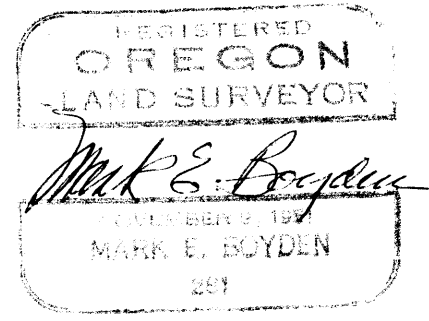 REGISTERED
OREGON
LAND SURVEYOR
Mark E. Boyden
NOVEMBER 9,
MARK E. BOYDEN